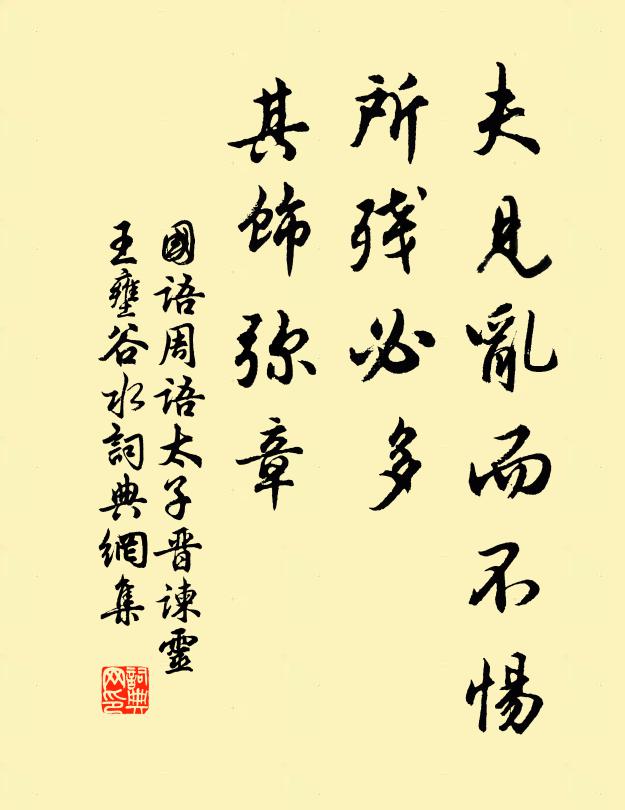 夫見亂而不惕
所殘必多
其飾弥章
國語周語太子晋諫靈
王壅谷水詞典網集
詞典
网印